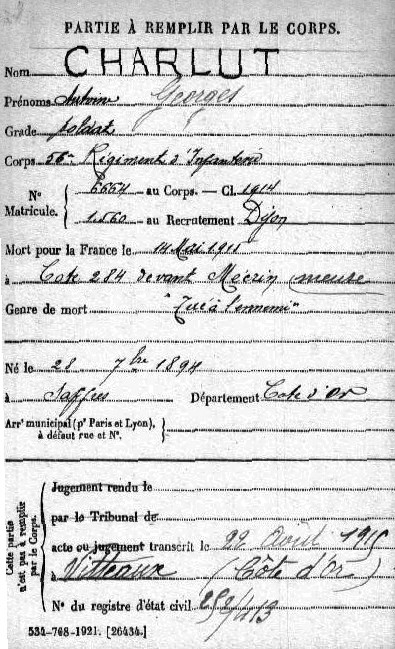 PARTIE À REMPLIR PAR LE CORPS.
Nom CHARLUT
Prénoms Antoine Georges
Grade soldat
Corps 56e Régiment d'Infanterie
N° Matricule. 6664 au Corps. — Cl. 1914
1560 au Recrutement Dijon
Mort pour la France le 14 Mai 1915
à Cote 284 devant Mécrin meuse
Genre de mort "Tué à l'ennemi"
Né le 28 7bre 1894
à Saffres Département Cote d'Or
Arrt municipal (pr Paris et Lyon),
à défaut rue et N°.
Cette partie n'est pas à remplir par le Corps.
Jugement rendu le
par le Tribunal de
acte ou jugement transcrit le 22 Août 1915
à Vitteaux (Côte d'Or)
N° du registre d'état civil
534-708-1921. [26434.]